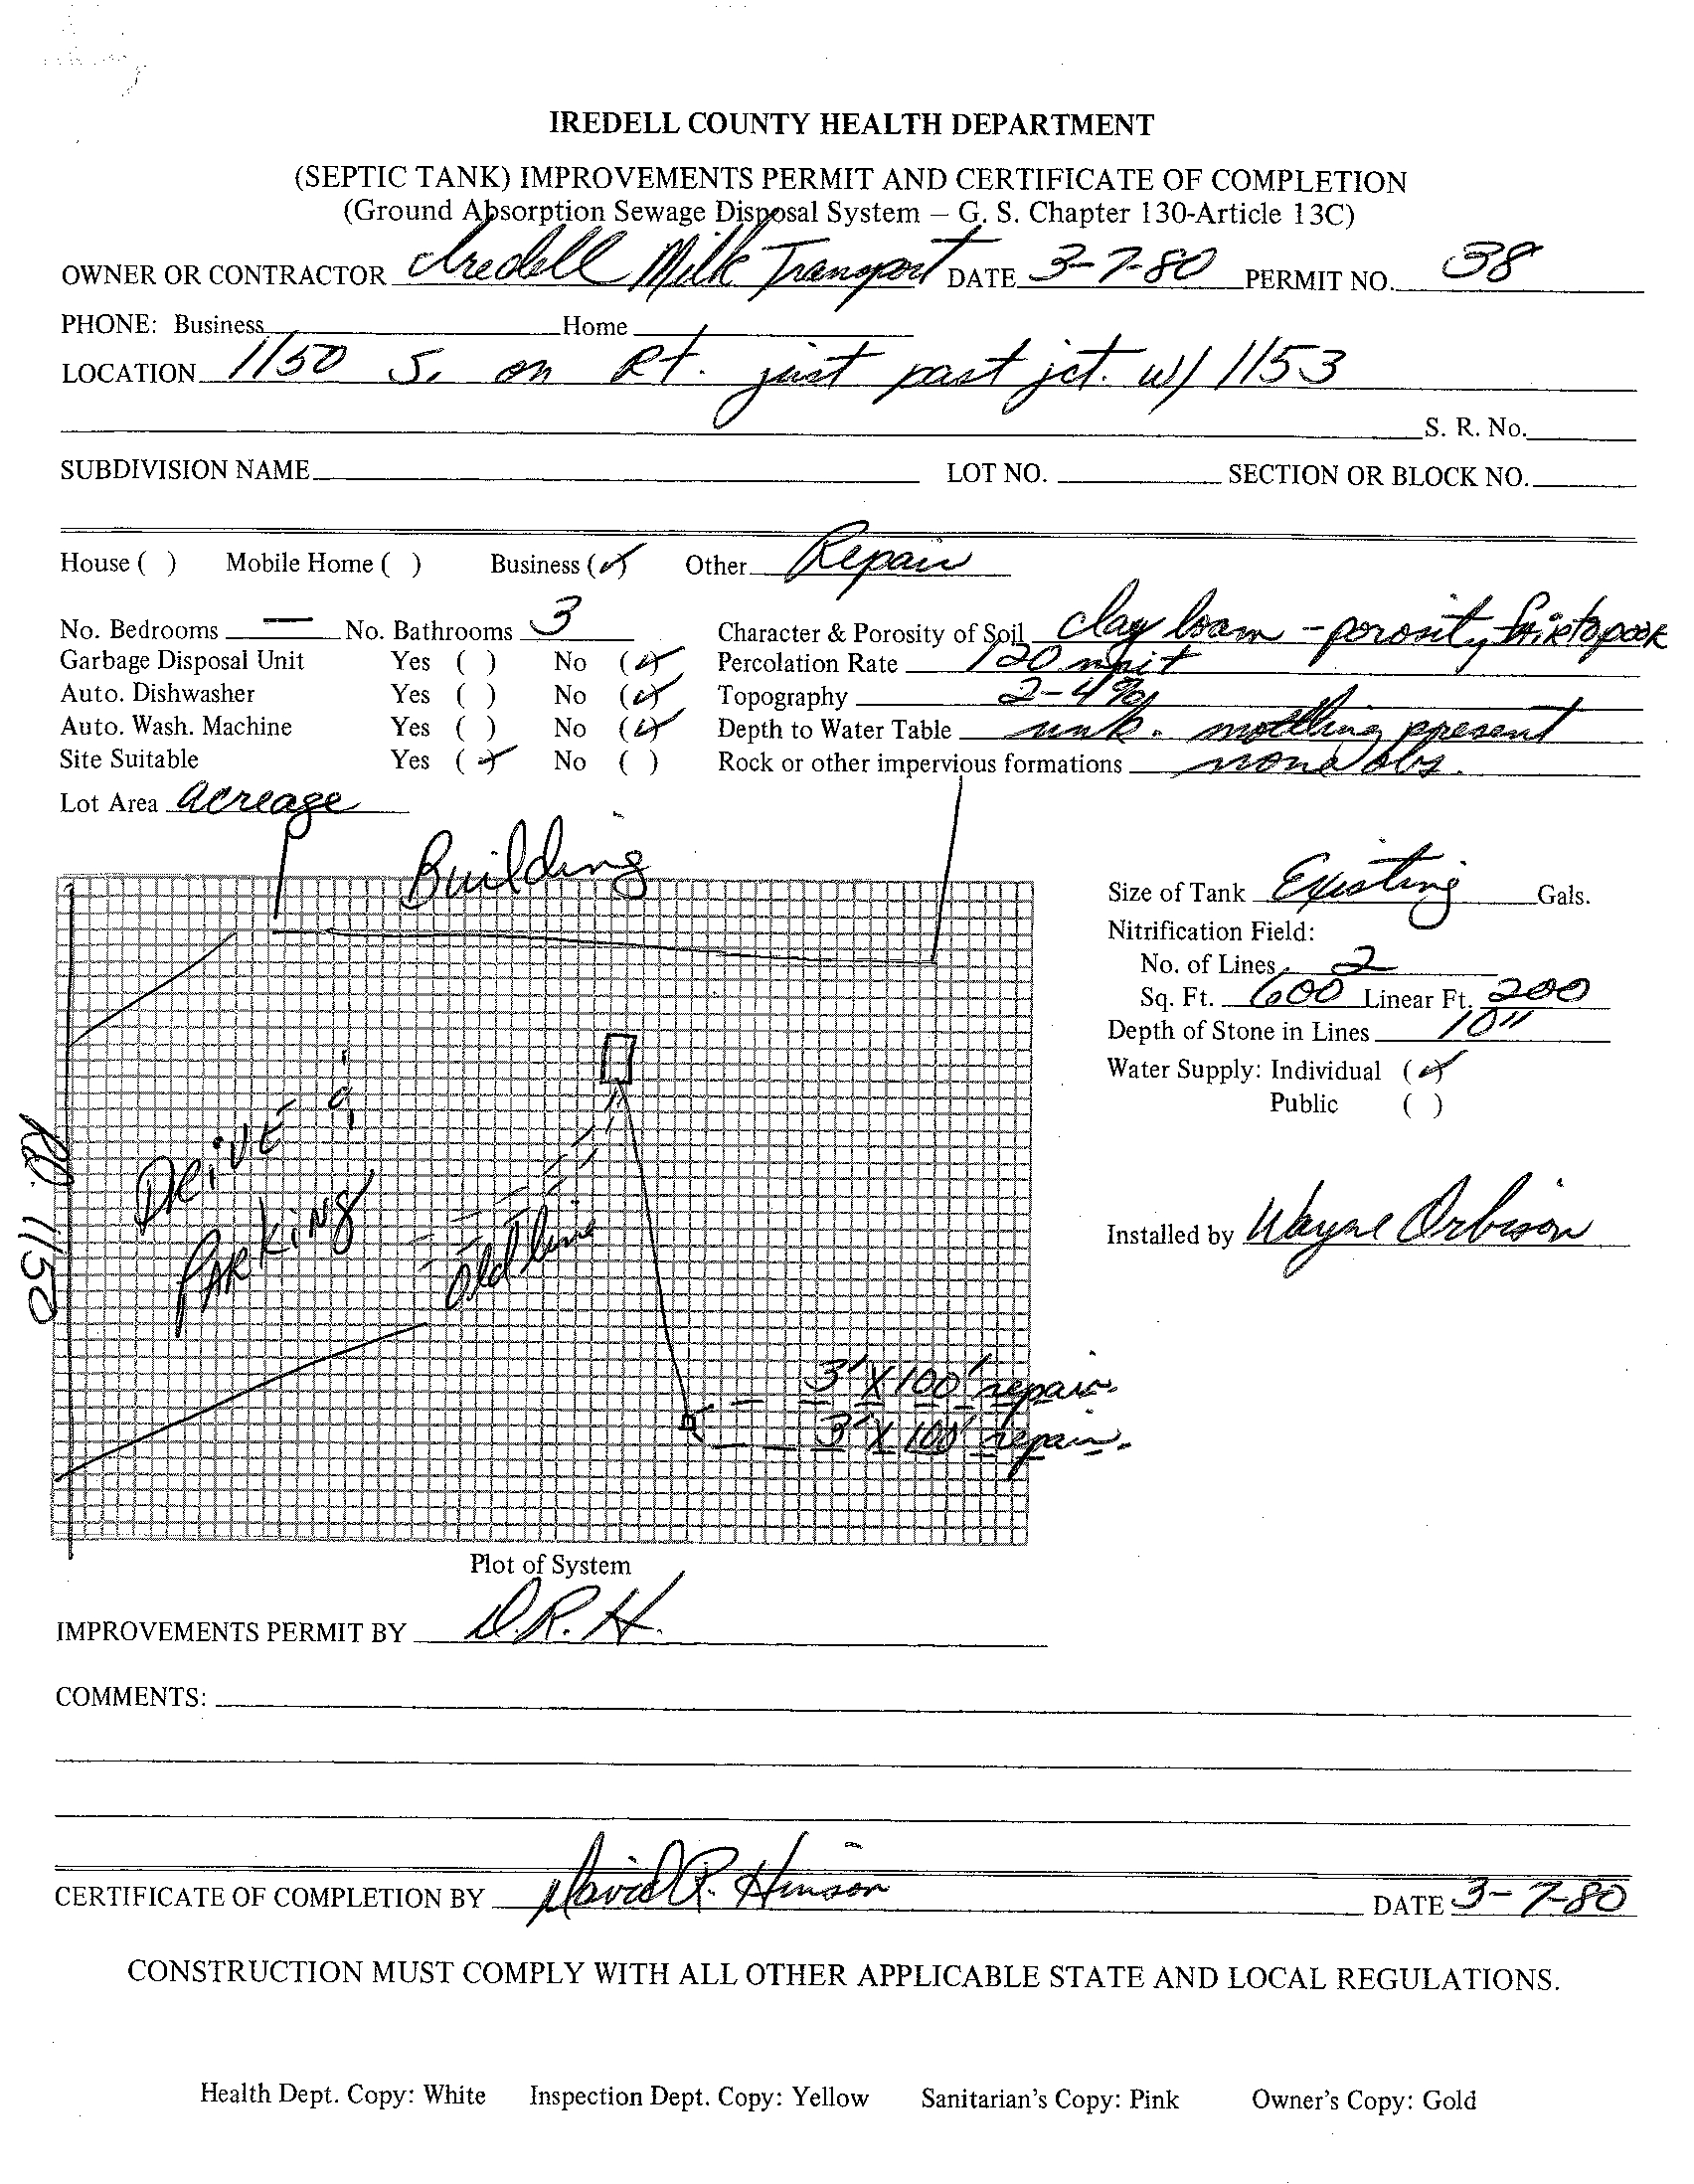 IREDELL COUNTY HEALTH DEPARTMENT
(SEPTIC TANK) IMPROVEMENTS PERMIT AND CERTIFICATE OF COMPLETION
(Ground Absorption Sewage Disposal System – G. S. Chapter 130-Article 13C)
OWNER OR CONTRACTOR Iredell Milk Transport DATE 3-7-80 PERMIT NO. 38
PHONE: Business Home
LOCATION 1150 S. on Rt. just past jct. w/ 1153
S. R. No.
SUBDIVISION NAME LOT NO. SECTION OR BLOCK NO.
House ( ) Mobile Home ( ) Business (✓) Other Repair
No. Bedrooms — No. Bathrooms 3 Character & Porosity of Soil clay loam - porosity fair to poor
Garbage Disposal Unit Yes ( ) No (✓) Percolation Rate 120 mpi
Auto. Dishwasher Yes ( ) No (✓) Topography 2-4%
Auto. Wash. Machine Yes ( ) No (✓) Depth to Water Table unk. mottling present
Site Suitable Yes (✓) No ( ) Rock or other impervious formations none obs.
Lot Area acreage
Building
Size of Tank Existing Gals.
Nitrification Field:
No. of Lines 2
Sq. Ft. 600 Linear Ft. 200
Depth of Stone in Lines 10"
Water Supply: Individual (✓)
Public ( )
DRIVE &
PARKING
RD. 1150
old line
Installed by Wayne Orbison
3' X 100' repair.
3' X 100' repair.
Plot of System
IMPROVEMENTS PERMIT BY D.R.H.
COMMENTS:
CERTIFICATE OF COMPLETION BY David R. Hinson DATE 3-7-80
CONSTRUCTION MUST COMPLY WITH ALL OTHER APPLICABLE STATE AND LOCAL REGULATIONS.
Health Dept. Copy: White Inspection Dept. Copy: Yellow Sanitarian's Copy: Pink Owner's Copy: Gold